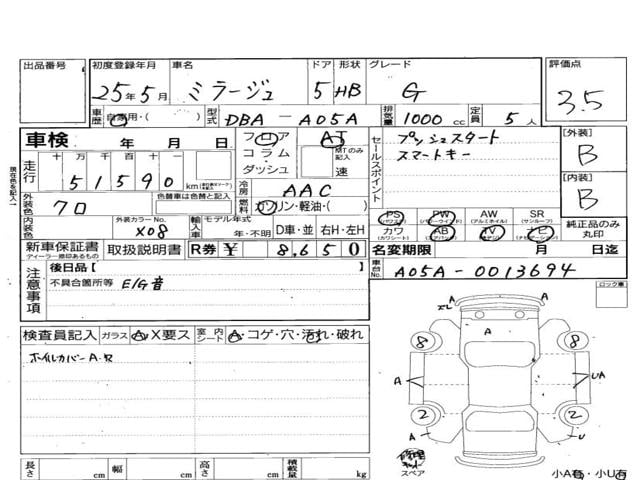 出品番号 初度登録年月 車名 ドア 形状 グレード 評価点
25年5月 ミラージュ 5 HB G 3.5
車歴 自家用・( ) 型式 DBA-A05A 排気量 1000 cc 定員 5人
車検 年 月 日 フロア コラム・ダッシュ AT MTのみ記入 速
セールスポイント プッシュスタート
スマートキー
[外装] B
[内装] B
走行 十万 万 千 百 十 一
51590 km
冷房 AAC
燃料 ガソリン・軽油・( )
外装色 クロ 色替車は色替と記入
内装色 外装カラーNo. X08 輸入車 モデル年式 年・不明 D車・並 右H・左H
PS PW AW SR
(パワステ) (パワーウインド) (アルミホイル) (サンルーフ)
カワ AB TV ナビ
(カワシート) (エアバック)
純正品のみ丸印
新車保証書 取扱説明書 R券 ¥ 8,650
ディーラー捺印あるもの
名変期限 月 日迄
車台No. A05A-0013694
注意事項 後日品【 】
不具合箇所等 E/G音
現在色を記入
ロック車
検査員記入 ガラス A・X要ス 室内シート A・コゲ・穴・汚れ・破れ
ホイルカバーA・欠
A
エレ A
A
8 8
A UA
2 2
A U
修理キット
スペア
小A有・小U有
長さ cm 幅 cm 高さ cm 積載量 kg